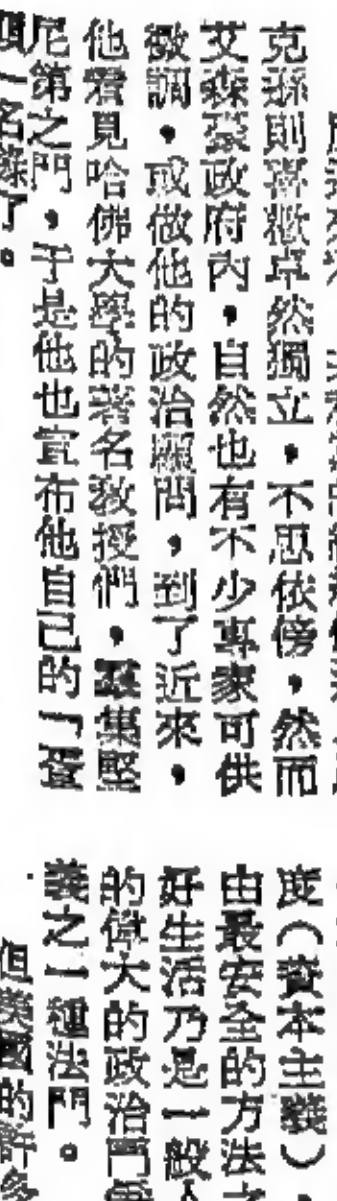 克孫則喜歡卓然獨立，不思依傍，然而
艾森豪政府內，自然也有不少專家可供
徵調，或做他的政治顧問，到了近來，
他看見哈佛大學的著名教授們，聚集堅
尼第之門，于是他也宣布他自己的「蛋
頭一名辭了。
度（資本主義），
由最安全的方法之
好生活乃是一般人
的偉大的政治鬥爭
義之一種法門。
但美國的許多